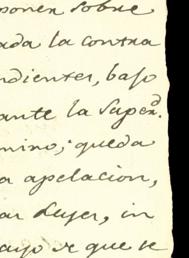 poner sobre
ada la contra
ndientes, bajo
ante la Super.d
mino; queda
a apelacion,
ar Leyes, in
ayo se que se